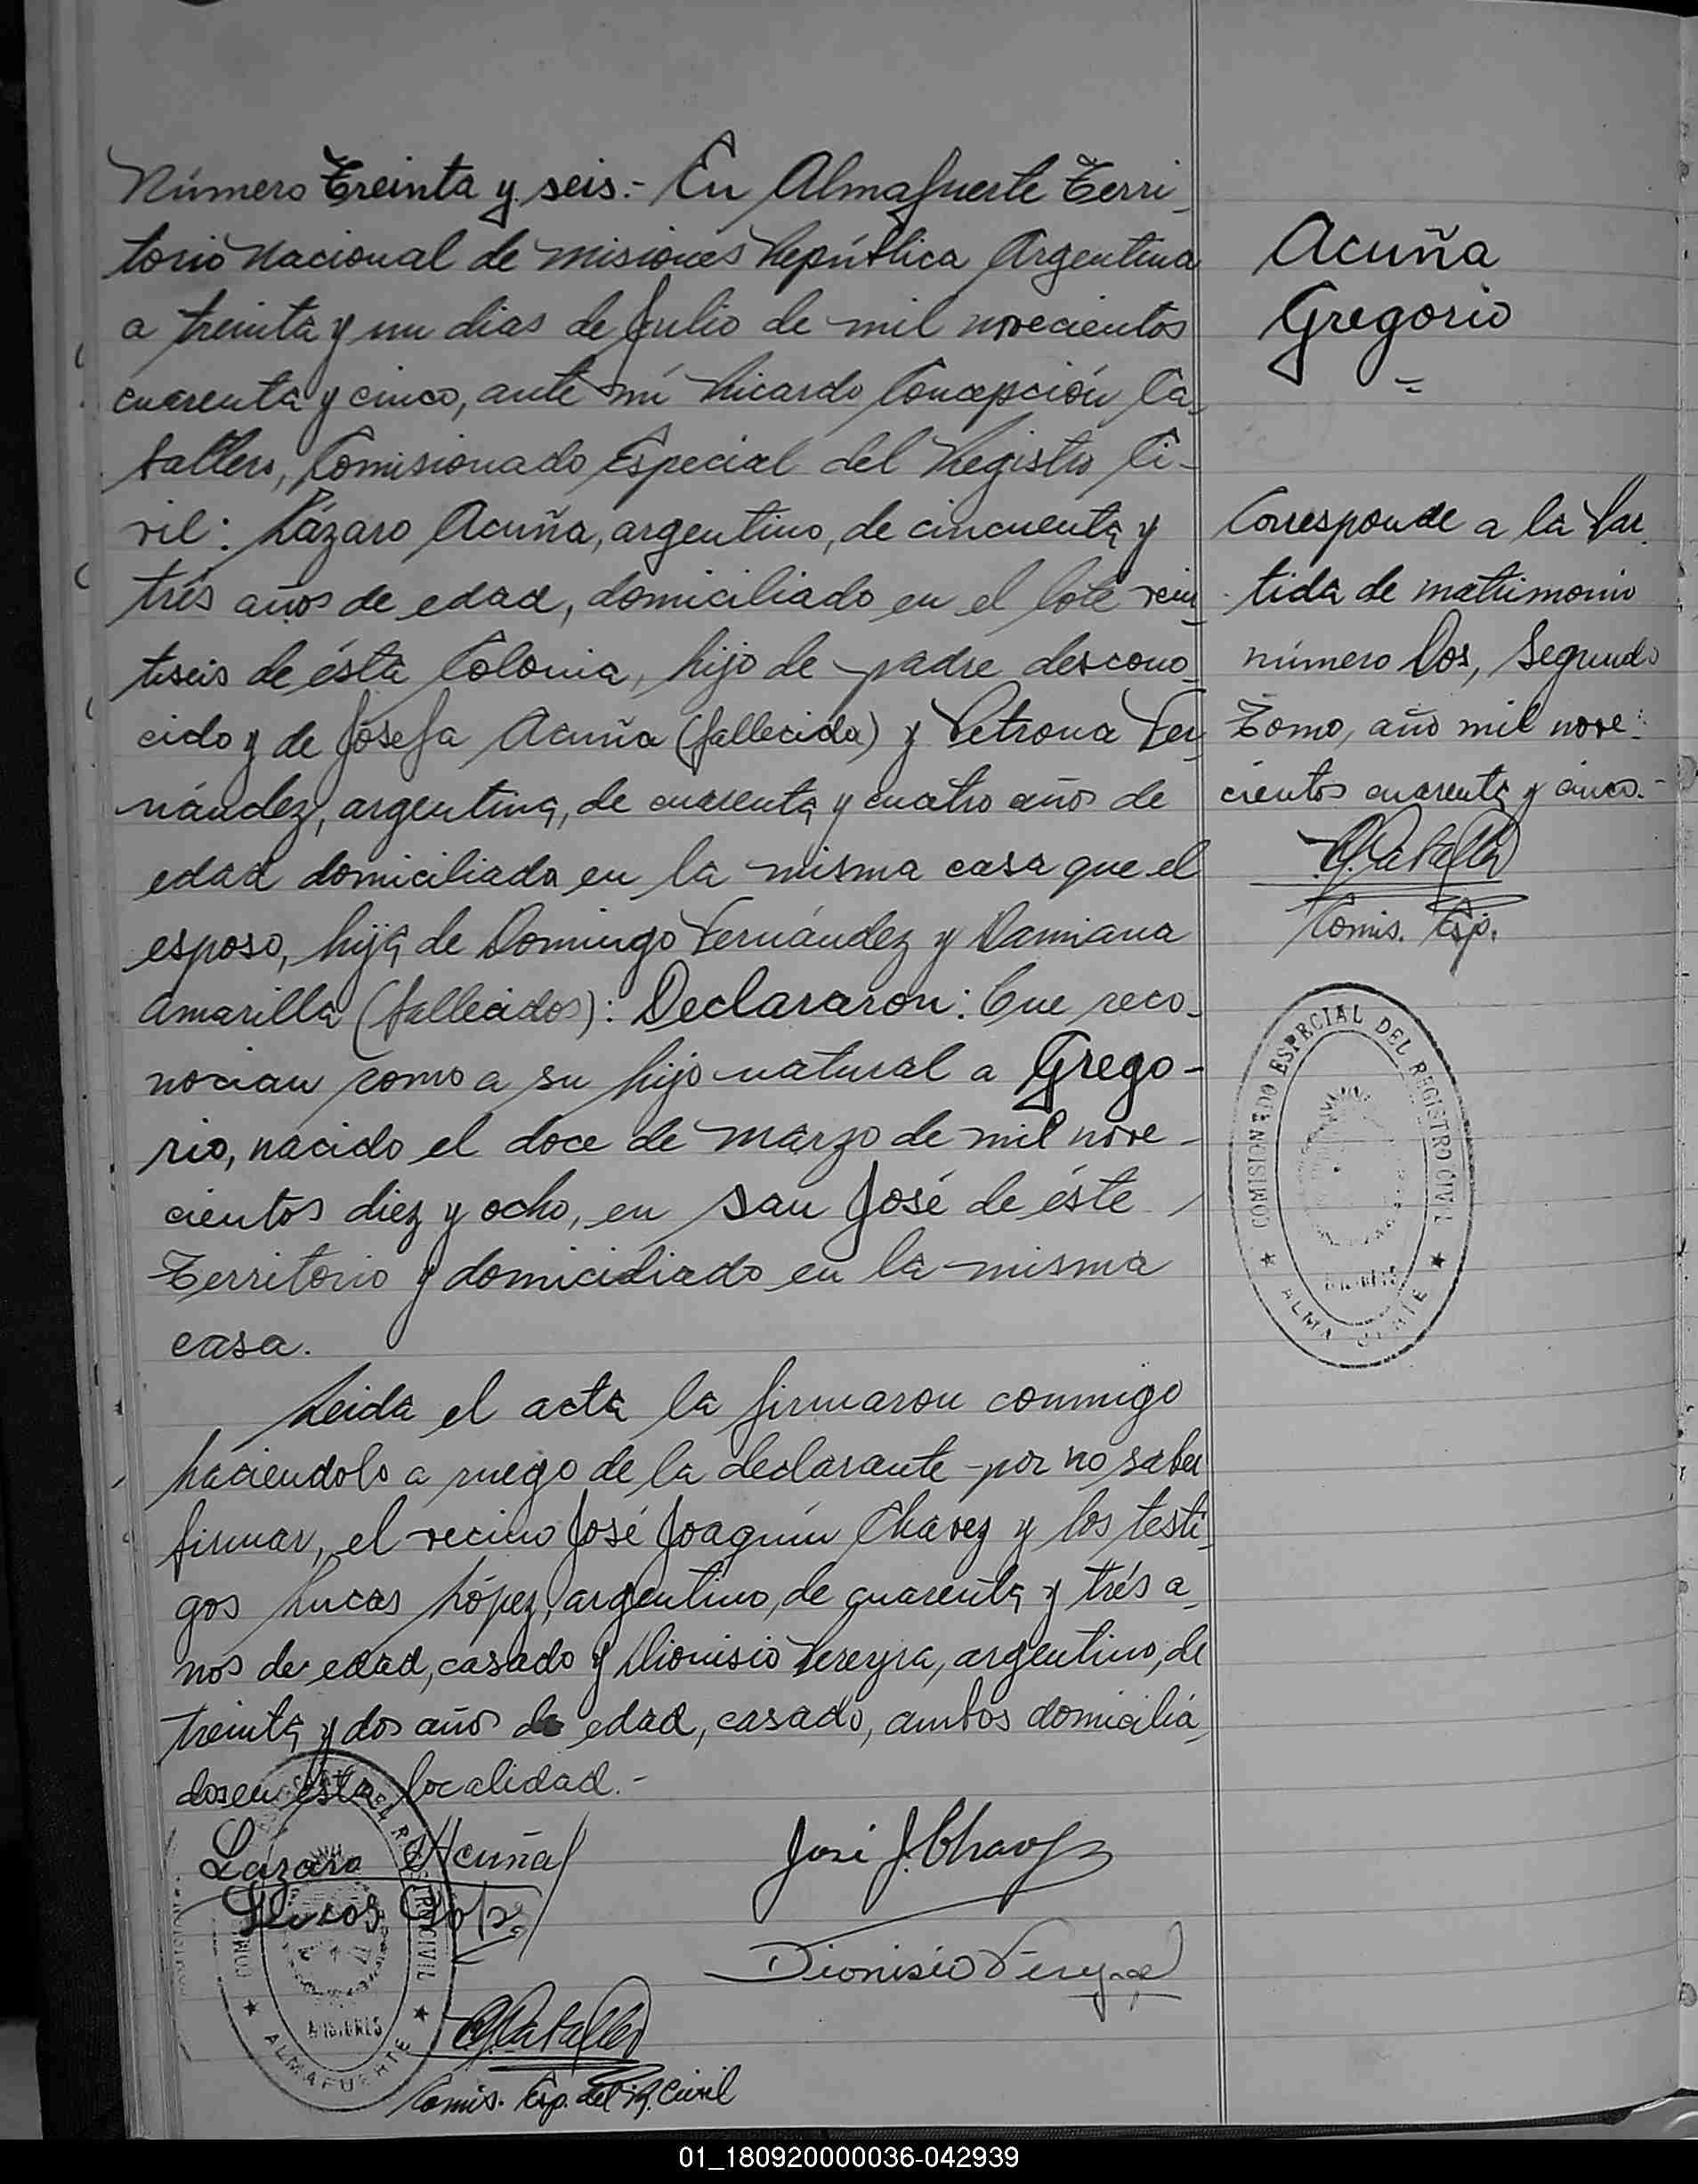 Número Treinta y seis.- En Almafuerte Terri-
torio Nacional de Misiones República Argentina
a treinta y un dias de Julio de mil novecientos
cuarenta y cinco, ante mí Ricardo Concepción Ca-
ballero, Comisionado Especial del Registro Ci-
vil: Lázaro Acuña, argentino, de cincuenta y
trés años de edad, domiciliado en el lote vein-
tiseis de ésta Colonia, hijo de padre descono-
cido y de Josefa Acuña (fallecida) y Petrona Fer-
nández, argentina, de cuarenta y cuatro años de
edad domiciliada en la misma casa que el
esposo, hija de Domingo Fernández y Damiana
Amarilla (fallecidos): Declararon: Que reco-
nocian como a su hijo natural a Grego-
rio, nacido el doce de Marzo de mil nove-
cientos diez y ocho, en San José de éste
Territorio y domiciliado en la misma
casa.
Leida el acta la firmaron conmigo
haciendolo a ruego de la declarante por no saber
firmar, el vecino José Joaquín Chavez y los testi-
gos Lucas López, argentino, de cuarenta y trés a-
ños de edad, casado y Dionisio Pereyra, argentino, de
treinta y dos años de edad, casado, ambos domicilia-
dos en ésta localidad.-
Lazaro Acuña
José J. Chavez
Lucas Lopez
Dionisio Pereyra
Caballero
Comis. Esp. del R. Civil
Acuña
Gregorio
=
Corresponde a la Par-
tida de matrimonio
número Dos, Segundo
Tomo, año mil nove-
cientos cuarenta y cinco.-
Caballero
Comis. Esp.
COMISIONADO ESPECIAL DEL REGISTRO CIVIL
MISIONES
★ ALMAFUERTE ★
REGISTRO CIVIL
MISIONES
★ ALMAFUERTE ★
01_180920000036-042939